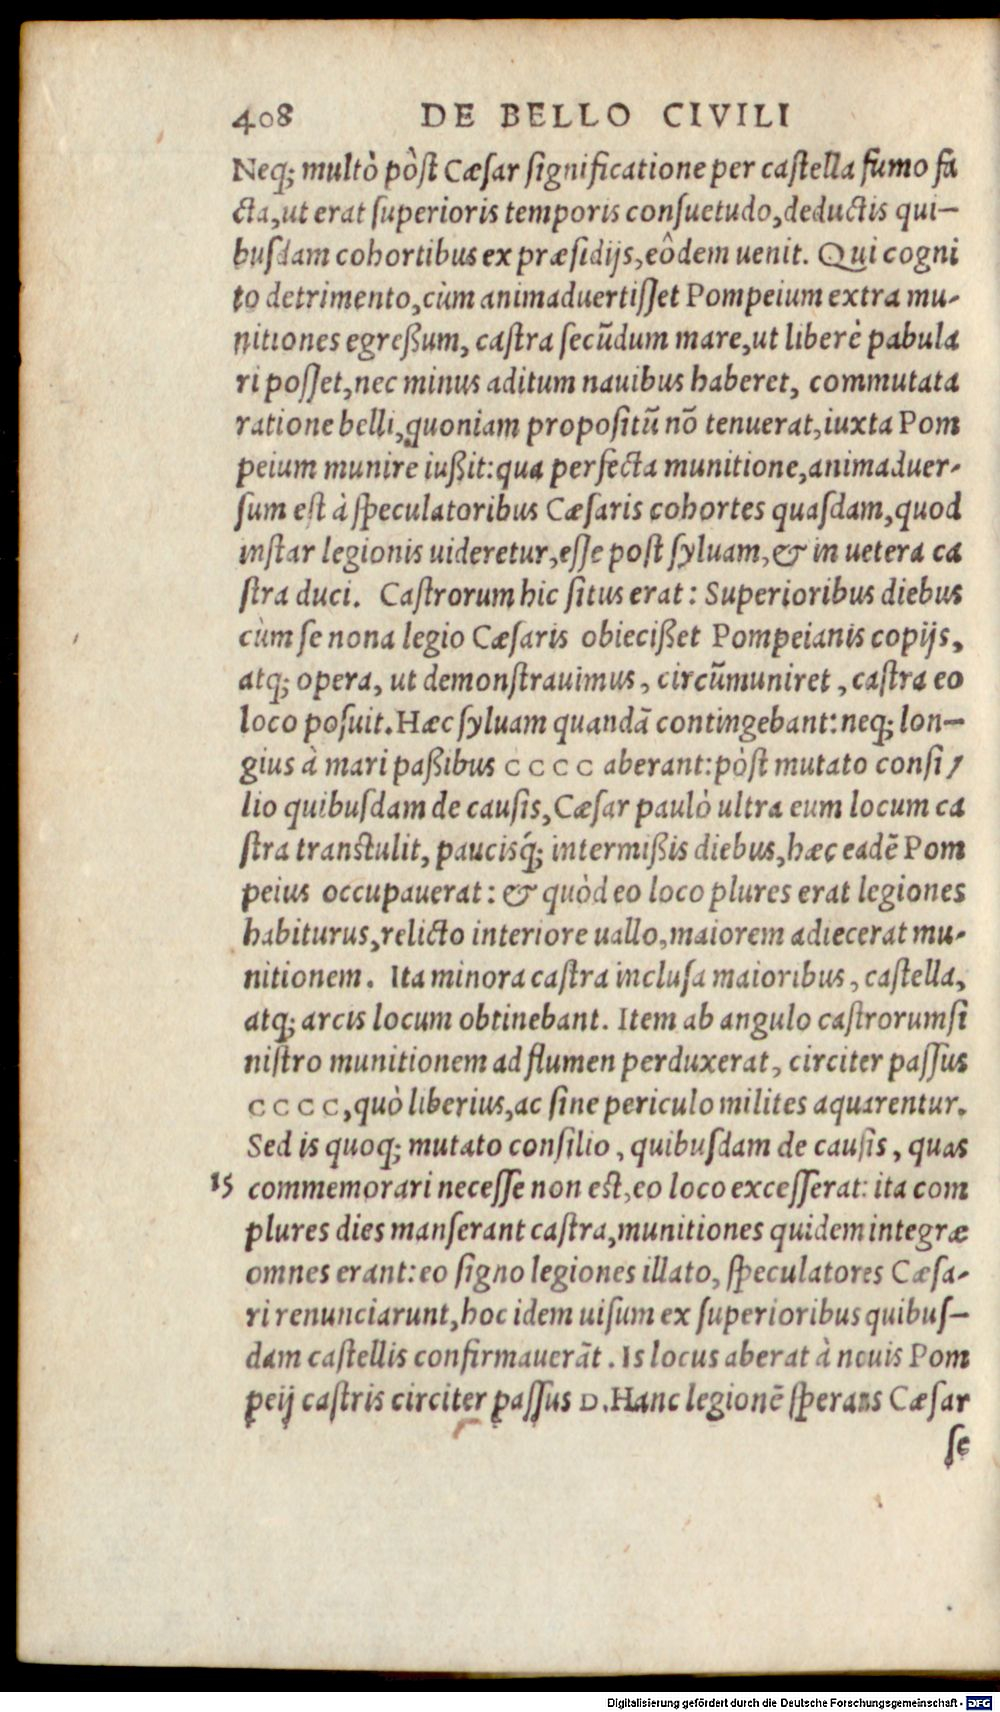 408 DE BELLO CIVILI
Neq; multò pòst Cæſar ſignificatione per caſtella fumo fa
cta, ut erat ſuperioris temporis conſuetudo, deductis qui-
buſdam cohortibus ex præſidijs, eôdem uenit. Qui cogni
to detrimento, cùm animaduertiſſet Pompeium extra mu-
nitiones egreßum, caſtra ſecũdum mare, ut liberè pabula
ri poſſet, nec minus aditum nauibus haberet, commutata
ratione belli, quoniam propoſitũ nõ tenuerat, iuxta Pom
peium munire iußit: qua perfecta munitione, animaduer-
ſum eſt à ſpeculatoribus Cæſaris cohortes quaſdam, quod
inſtar legionis uideretur, eſſe poſt ſyluam, & in uetera ca
ſtra duci. Caſtrorum hic ſitus erat: Superioribus diebus
cùm ſe nona legio Cæſaris obiecißet Pompeianis copijs,
atq; opera, ut demonſtrauimus, circũmuniret, caſtra eo
loco poſuit. Hæc ſyluam quandã contingebant: neq; lon-
gius à mari paßibus CCCC aberant: pòſt mutato conſi-
lio quibuſdam de cauſis, Cæſar paulò ultra eum locum ca
ſtra tranſtulit, pauciſq́; intermißis diebus, hæc eadẽ Pom
peius occupauerat: & quòd eo loco plures erat legiones
habiturus, relicto interiore uallo, maiorem adiecerat mu-
nitionem. Ita minora caſtra incluſa maioribus, caſtella,
atq; arcis locum obtinebant. Item ab angulo caſtrorum ſi
niſtro munitionem ad flumen perduxerat, circiter paſſus
CCCC, quò liberius, ac ſine periculo milites aquarentur.
Sed is quoq; mutato conſilio, quibuſdam de cauſis, quas
15 commemorari neceſſe non eſt, eo loco exceſſerat: ita com
plures dies manſerant caſtra, munitiones quidem integræ
omnes erant: eo ſigno legiones illato, ſpeculatores Cæſa-
ri renunciarunt, hoc idem uiſum ex ſuperioribus quibuſ-
dam caſtellis confirmauerãt. Is locus aberat à nouis Pom
peij caſtris circiter paſſus D. Hanc legionẽ ſperans Cæſar
ſe
Digitalisierung gefördert durch die Deutsche Forschungsgemeinschaft - DFG